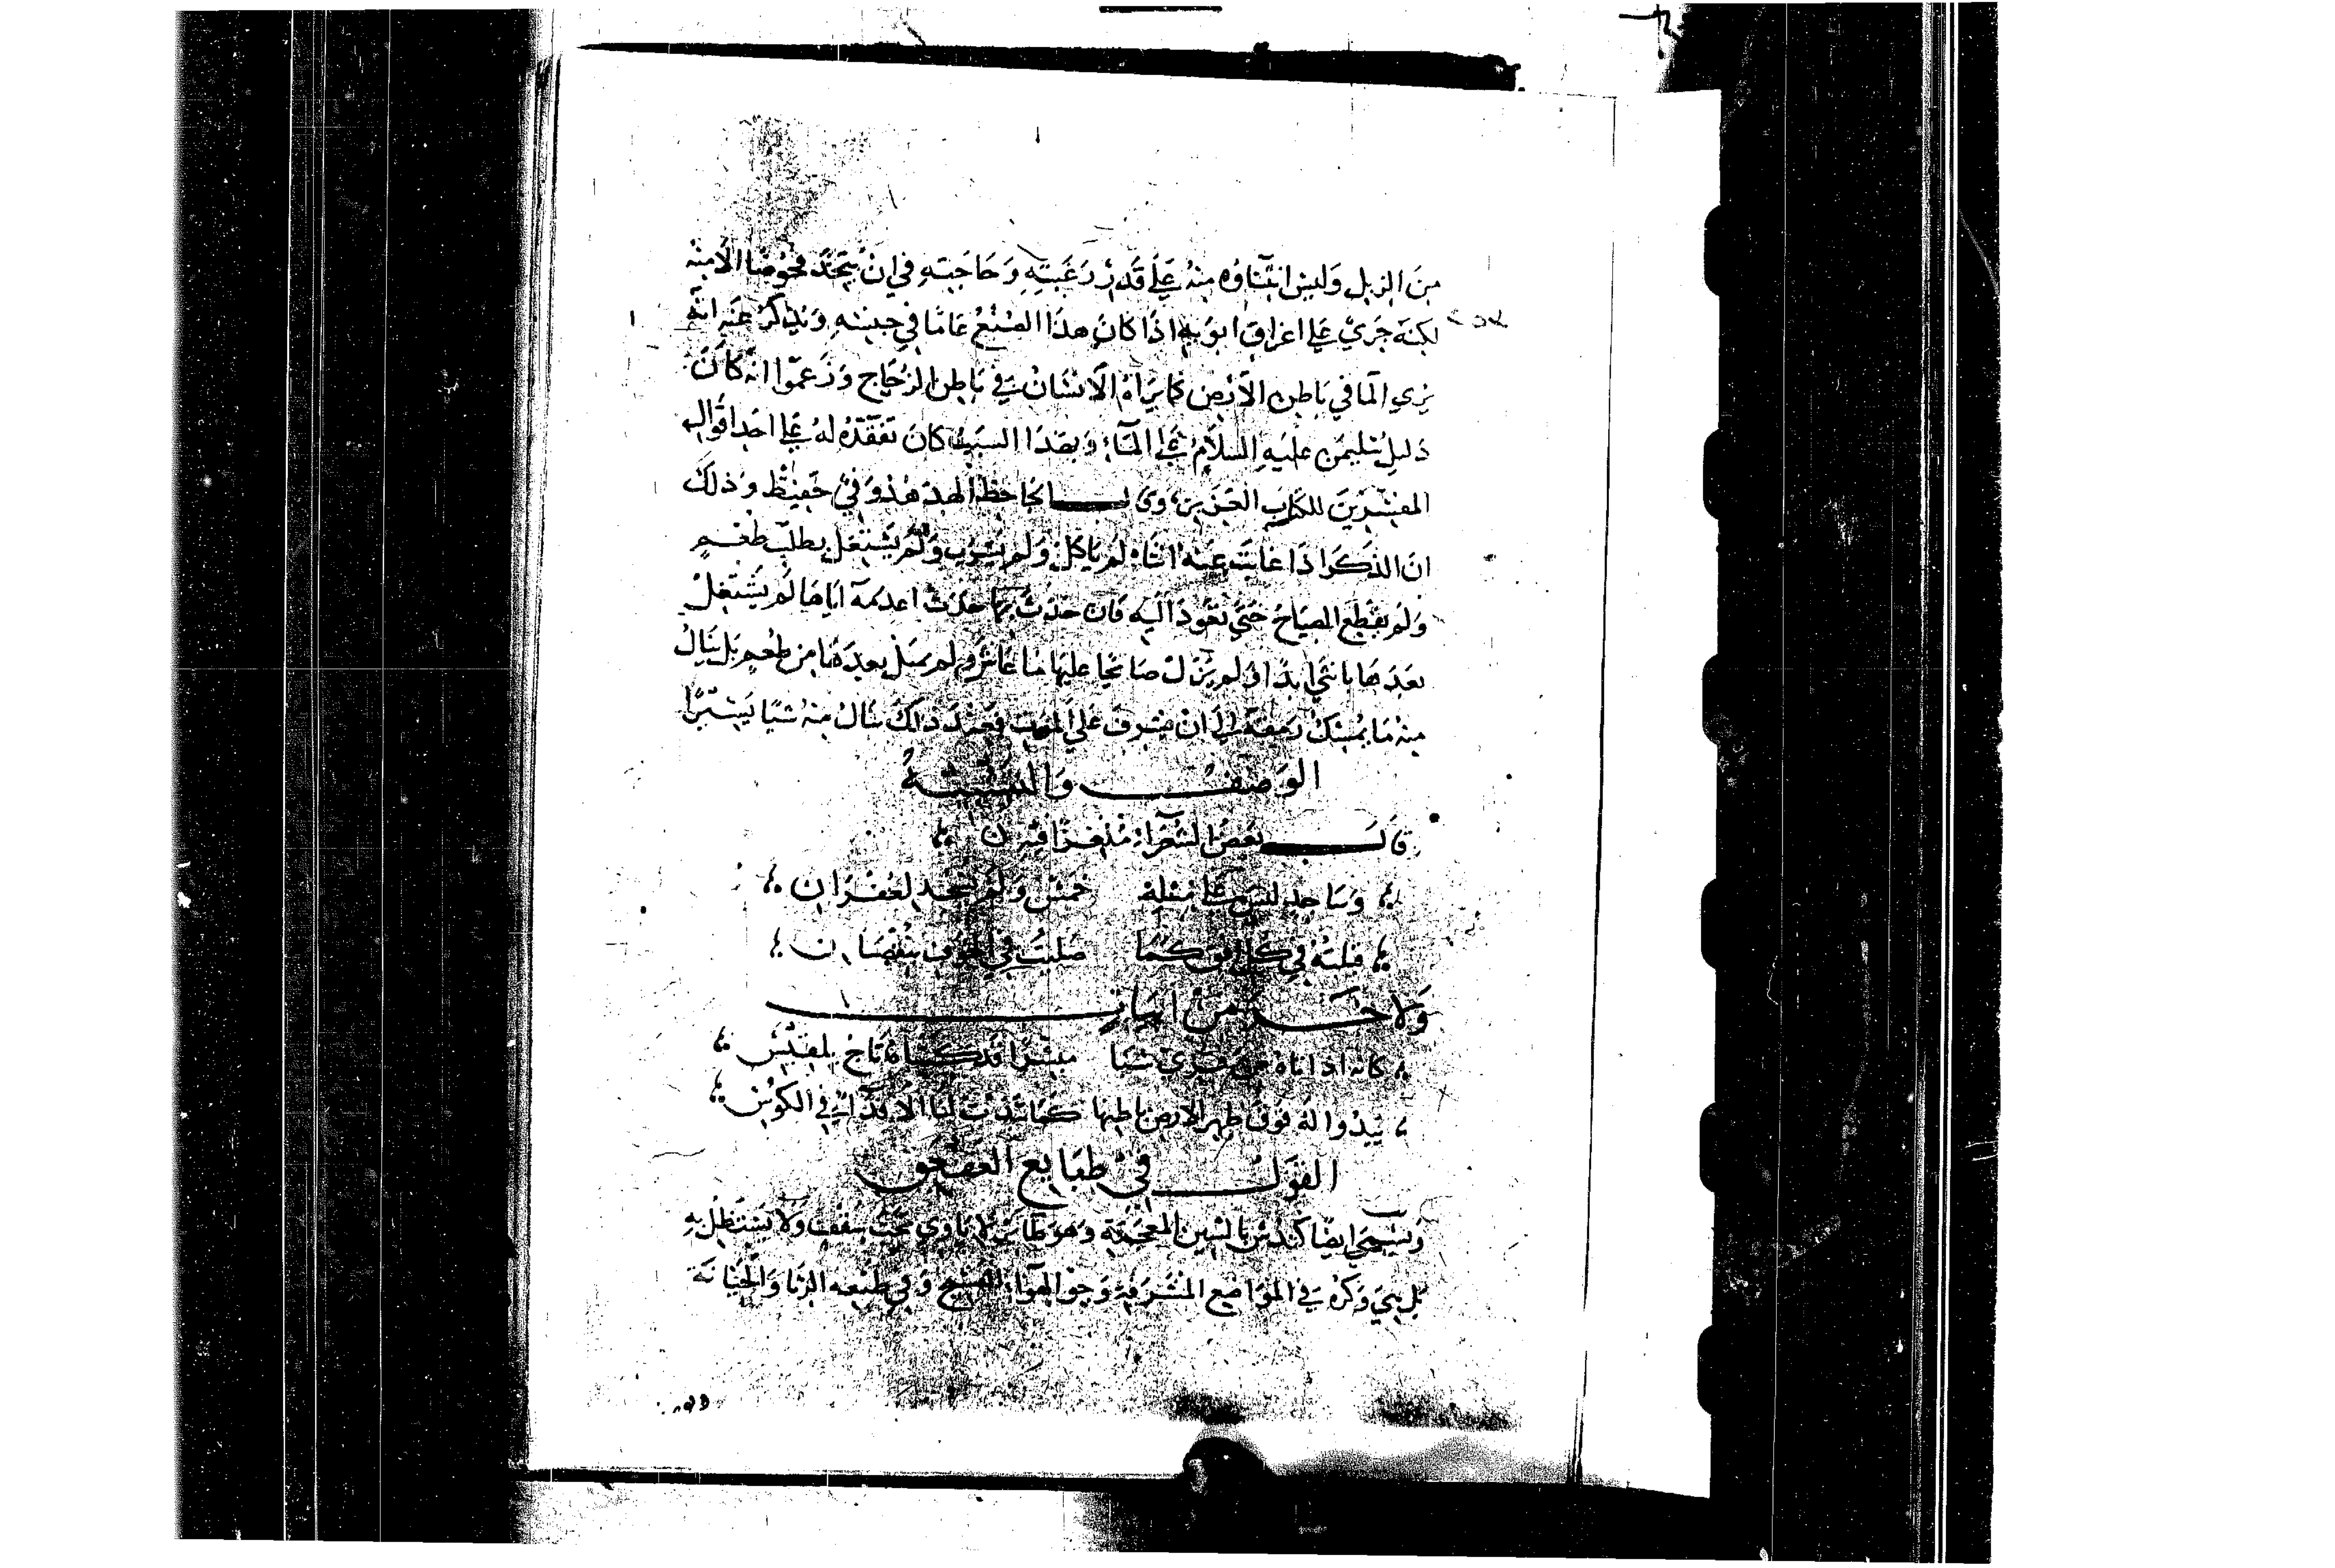 من الزبل وليس انتناوه منه علي قدر رغبته وحاجته في ان يتخذ فحوصًا الا منه
لكنه جري علي اعراق ابويه اذا كان هذا الصنع عامًا في جنسه ويذكر عنه انه
يري الما في باطن الارض كما يراه الانسان في باطن الزجاج وزعموا انه كان
دليل سليمن عليه السلام علي المآء وبهذا السبب كان تفقده له علي احد اقوال
المفسرين للكتاب العزيز وقال الجاحظ الهدهد وفي حفيظ وذلك
ان الذكر اذا غابت عنه انثاه لم ياكل ولم يشرب ولم يشتغل بطلب طعم
ولم يقطع الصياح حتي تعود اليه فان حدث بها حدث اعدمه اياها لم يشتغل
بعدها بانثي ابدا ولم يزل صائحا عليها ما عاش ولم ينل بعدها من طعم بل ينال
منه ما يمسك رمقه الي ان يشرف علي الموت فعند ذلك ينال منه شيًا يسيرًا
الوصف والتشبيه
قال بعض الشعرآء ملغزا فيه
وساجد ليس علي مثله خمس ولم يسجد لغفران
في كل افق كما صليت في الجوف بنقصان
ولاخر من ابيات
كانه اذ اتاه من قري سبا مبشرًا قد كساه تاج بلقيس
يبدوا له فوق ظهر الارض باطنها كما تبدت لنا الاقذآء في الكوس
القول في طبايع العقعق
ويسمي ايضًا كندش بالشين المعجمة وهو طائر لا ياوي تحت سقف ولا يستظل به
بل يبني وكره في المواضع المشرفة وجو الهوآء الفسيح وفي طبعه الزنا والخيانة